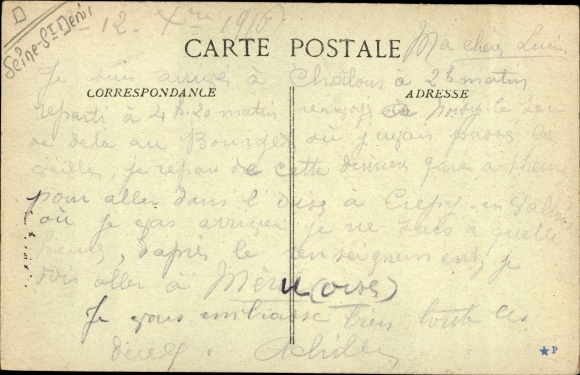 Seine-St Denis
12. Xbre 1916
CARTE POSTALE
Ma chère Lucie
CORRESPONDANCE
ADRESSE
Je suis arrivé à Châlons a 2h matin
reparti à 4h20 matin Noisy le Sec
de dela au Bourget ou
je repars de cette dernière gare a
pour aller dans l'Oise à Crépy en Valois
où je vais arriver je ne sais à quelle
heure, d'après le renseignement je
dois aller à Méru (Oise)
Je vous embrasse bien toute les
deux. Achille
P